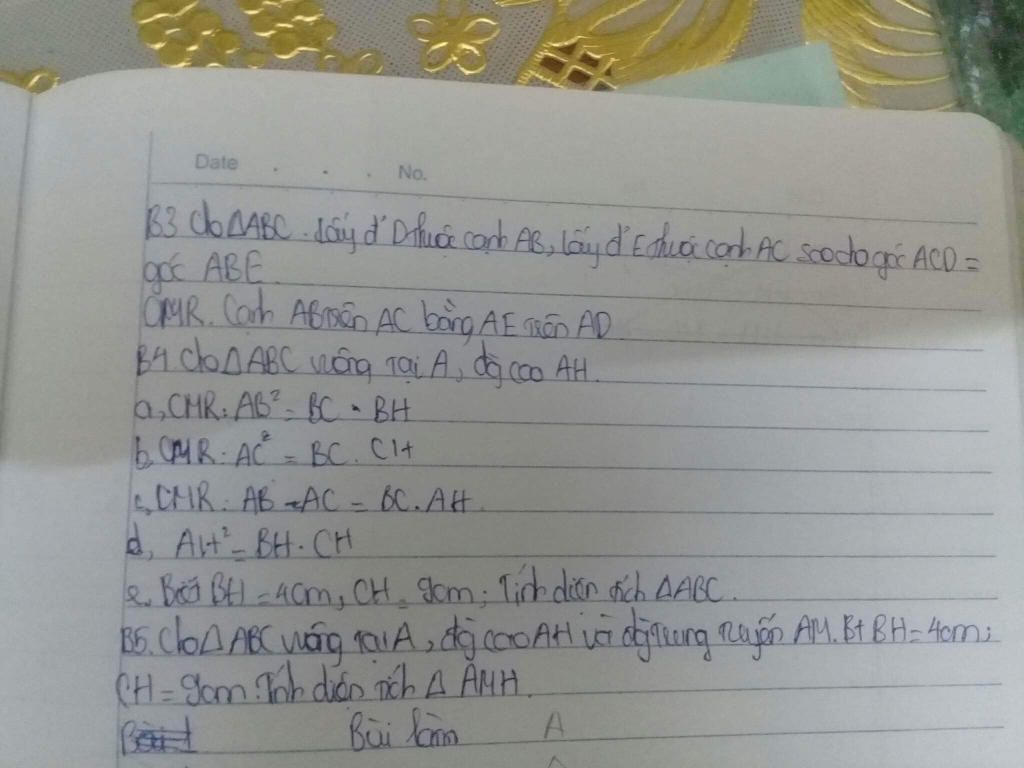 Date . . . No.
B3 Cho ΔABC. Lấy đ' D thuộc cạnh AB, lấy đ' E thuộc cạnh AC sao cho góc ACD =
góc ABE
CMR. Cạnh AB trên AC bằng AE trên AD
B4. Cho ΔABC vuông tại A, đg cao AH.
a, CMR: AB² = BC . BH
b, CMR: AC² = BC. CH
c, CMR: AB . AC = BC. AH
d, AH² = BH. CH
e. Biết BH = 4cm, CH = 9cm; Tính diện tích ΔABC.
B5. Cho Δ ABC vuông tại A, đg cao AH và đg trung tuyến AM. Bt BH = 4cm;
CH = 9cm. Tính diện tích Δ AMH.
Bài làm A